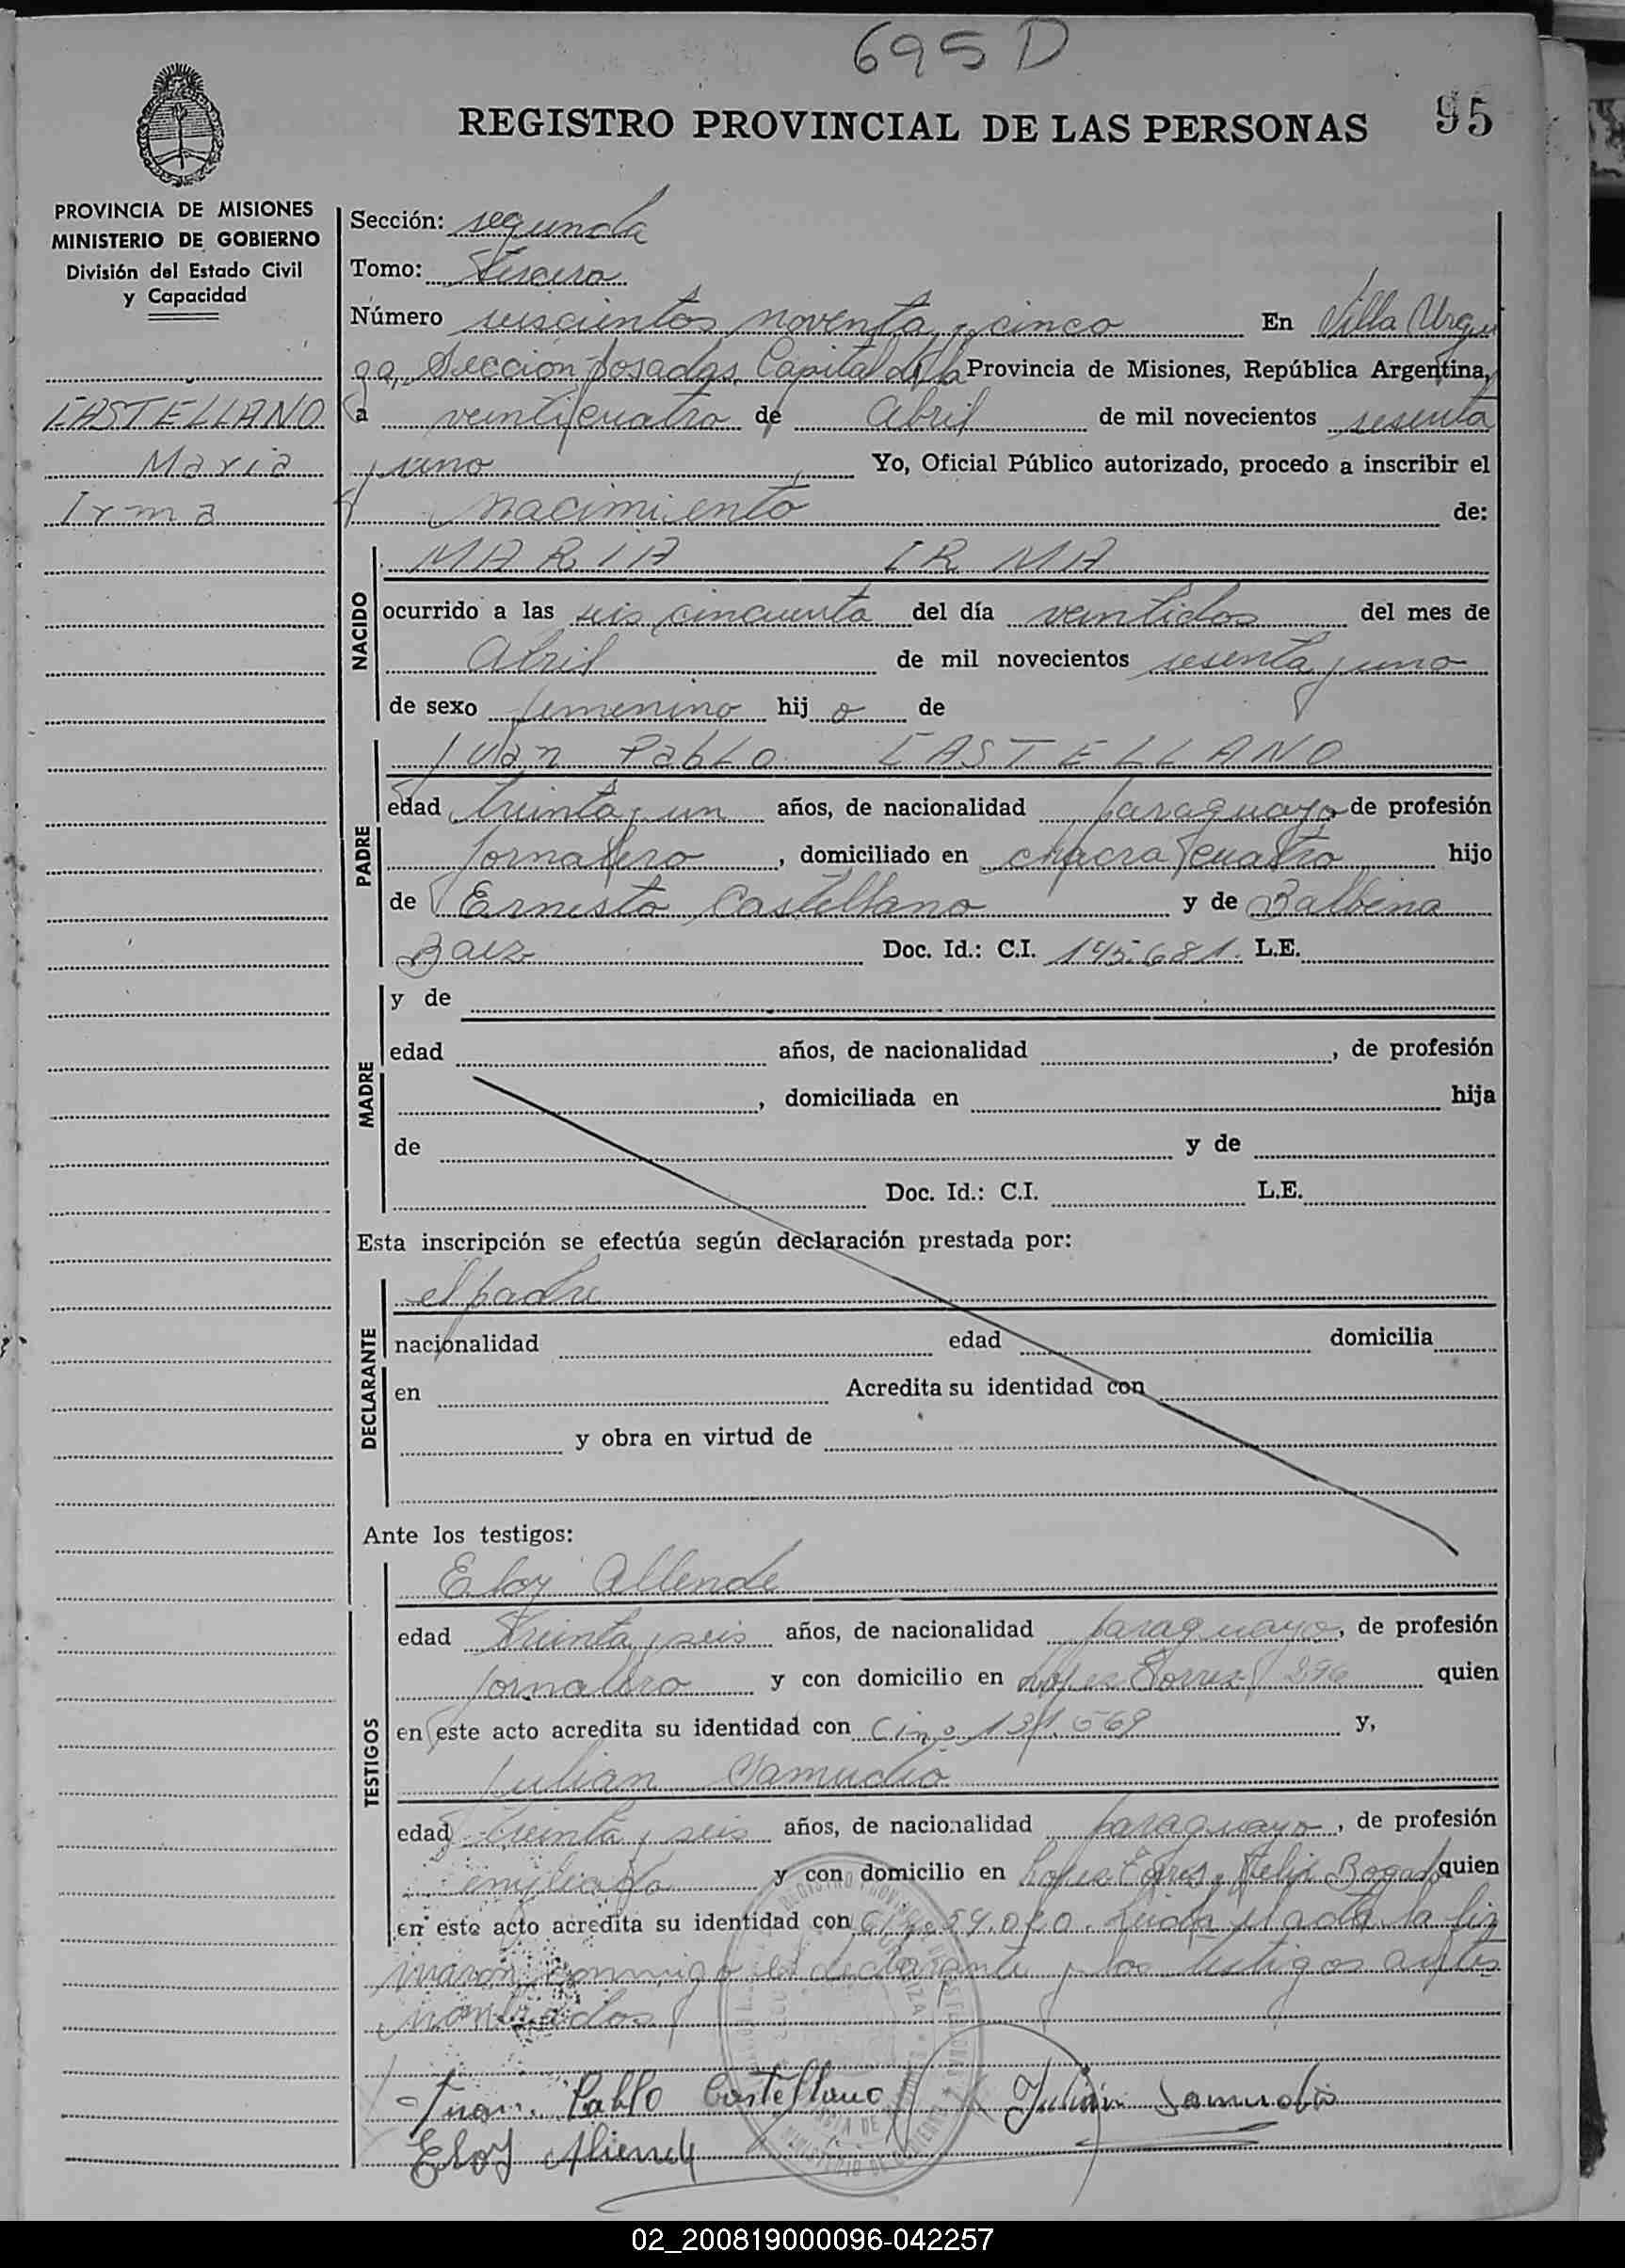 695 D
REGISTRO PROVINCIAL DE LAS PERSONAS 95
PROVINCIA DE MISIONES
MINISTERIO DE GOBIERNO
División del Estado Civil
y Capacidad
CASTELLANO
Maria
Irma
Sección: segunda
Tomo: Tercero
Número seiscientos noventa y cinco En Villa Urqui
ga, Sección Posadas, Capital de la Provincia de Misiones, República Argentina,
a veinticuatro de Abril de mil novecientos sesenta
y uno Yo, Oficial Público autorizado, procedo a inscribir el
nacimiento de:
NACIDO
MARIA IRMA
ocurrido a las seis cincuenta del día veintidos del mes de
Abril de mil novecientos sesenta y uno
de sexo femenino hij o de
PADRE
Juan Pablo CASTELLANO
edad treinta y un años, de nacionalidad paraguayo de profesión
jornalero, domiciliado en chacra cuatro hijo
de Ernesto Castellano y de Balbina
Baez Doc. Id.: C.I. 145.681. L.E.
MADRE
y de
edad años, de nacionalidad , de profesión
, domiciliada en hija
de y de
Doc. Id.: C.I. L.E.
Esta inscripción se efectúa según declaración prestada por:
DECLARANTE
el padre
nacionalidad edad domicilia
en Acredita su identidad con
y obra en virtud de
Ante los testigos:
TESTIGOS
Eloy Allende
edad treinta y seis años, de nacionalidad paraguayo, de profesión
jornalero y con domicilio en Lopez Torres 296 quien
en este acto acredita su identidad con C.i.nº 131.569 y,
Julian Samudio
edad treinta y seis años, de nacionalidad paraguayo, de profesión
empleado y con domicilio en Lopez Torres y Felix Bogado quien
en este acto acredita su identidad con Leida el acta la fir
maron conmigo el declarante y los testigos antes
nombrados
Juan Pablo Castellano Julián Samudio
Eloy Aliende
02_200819000096-042257